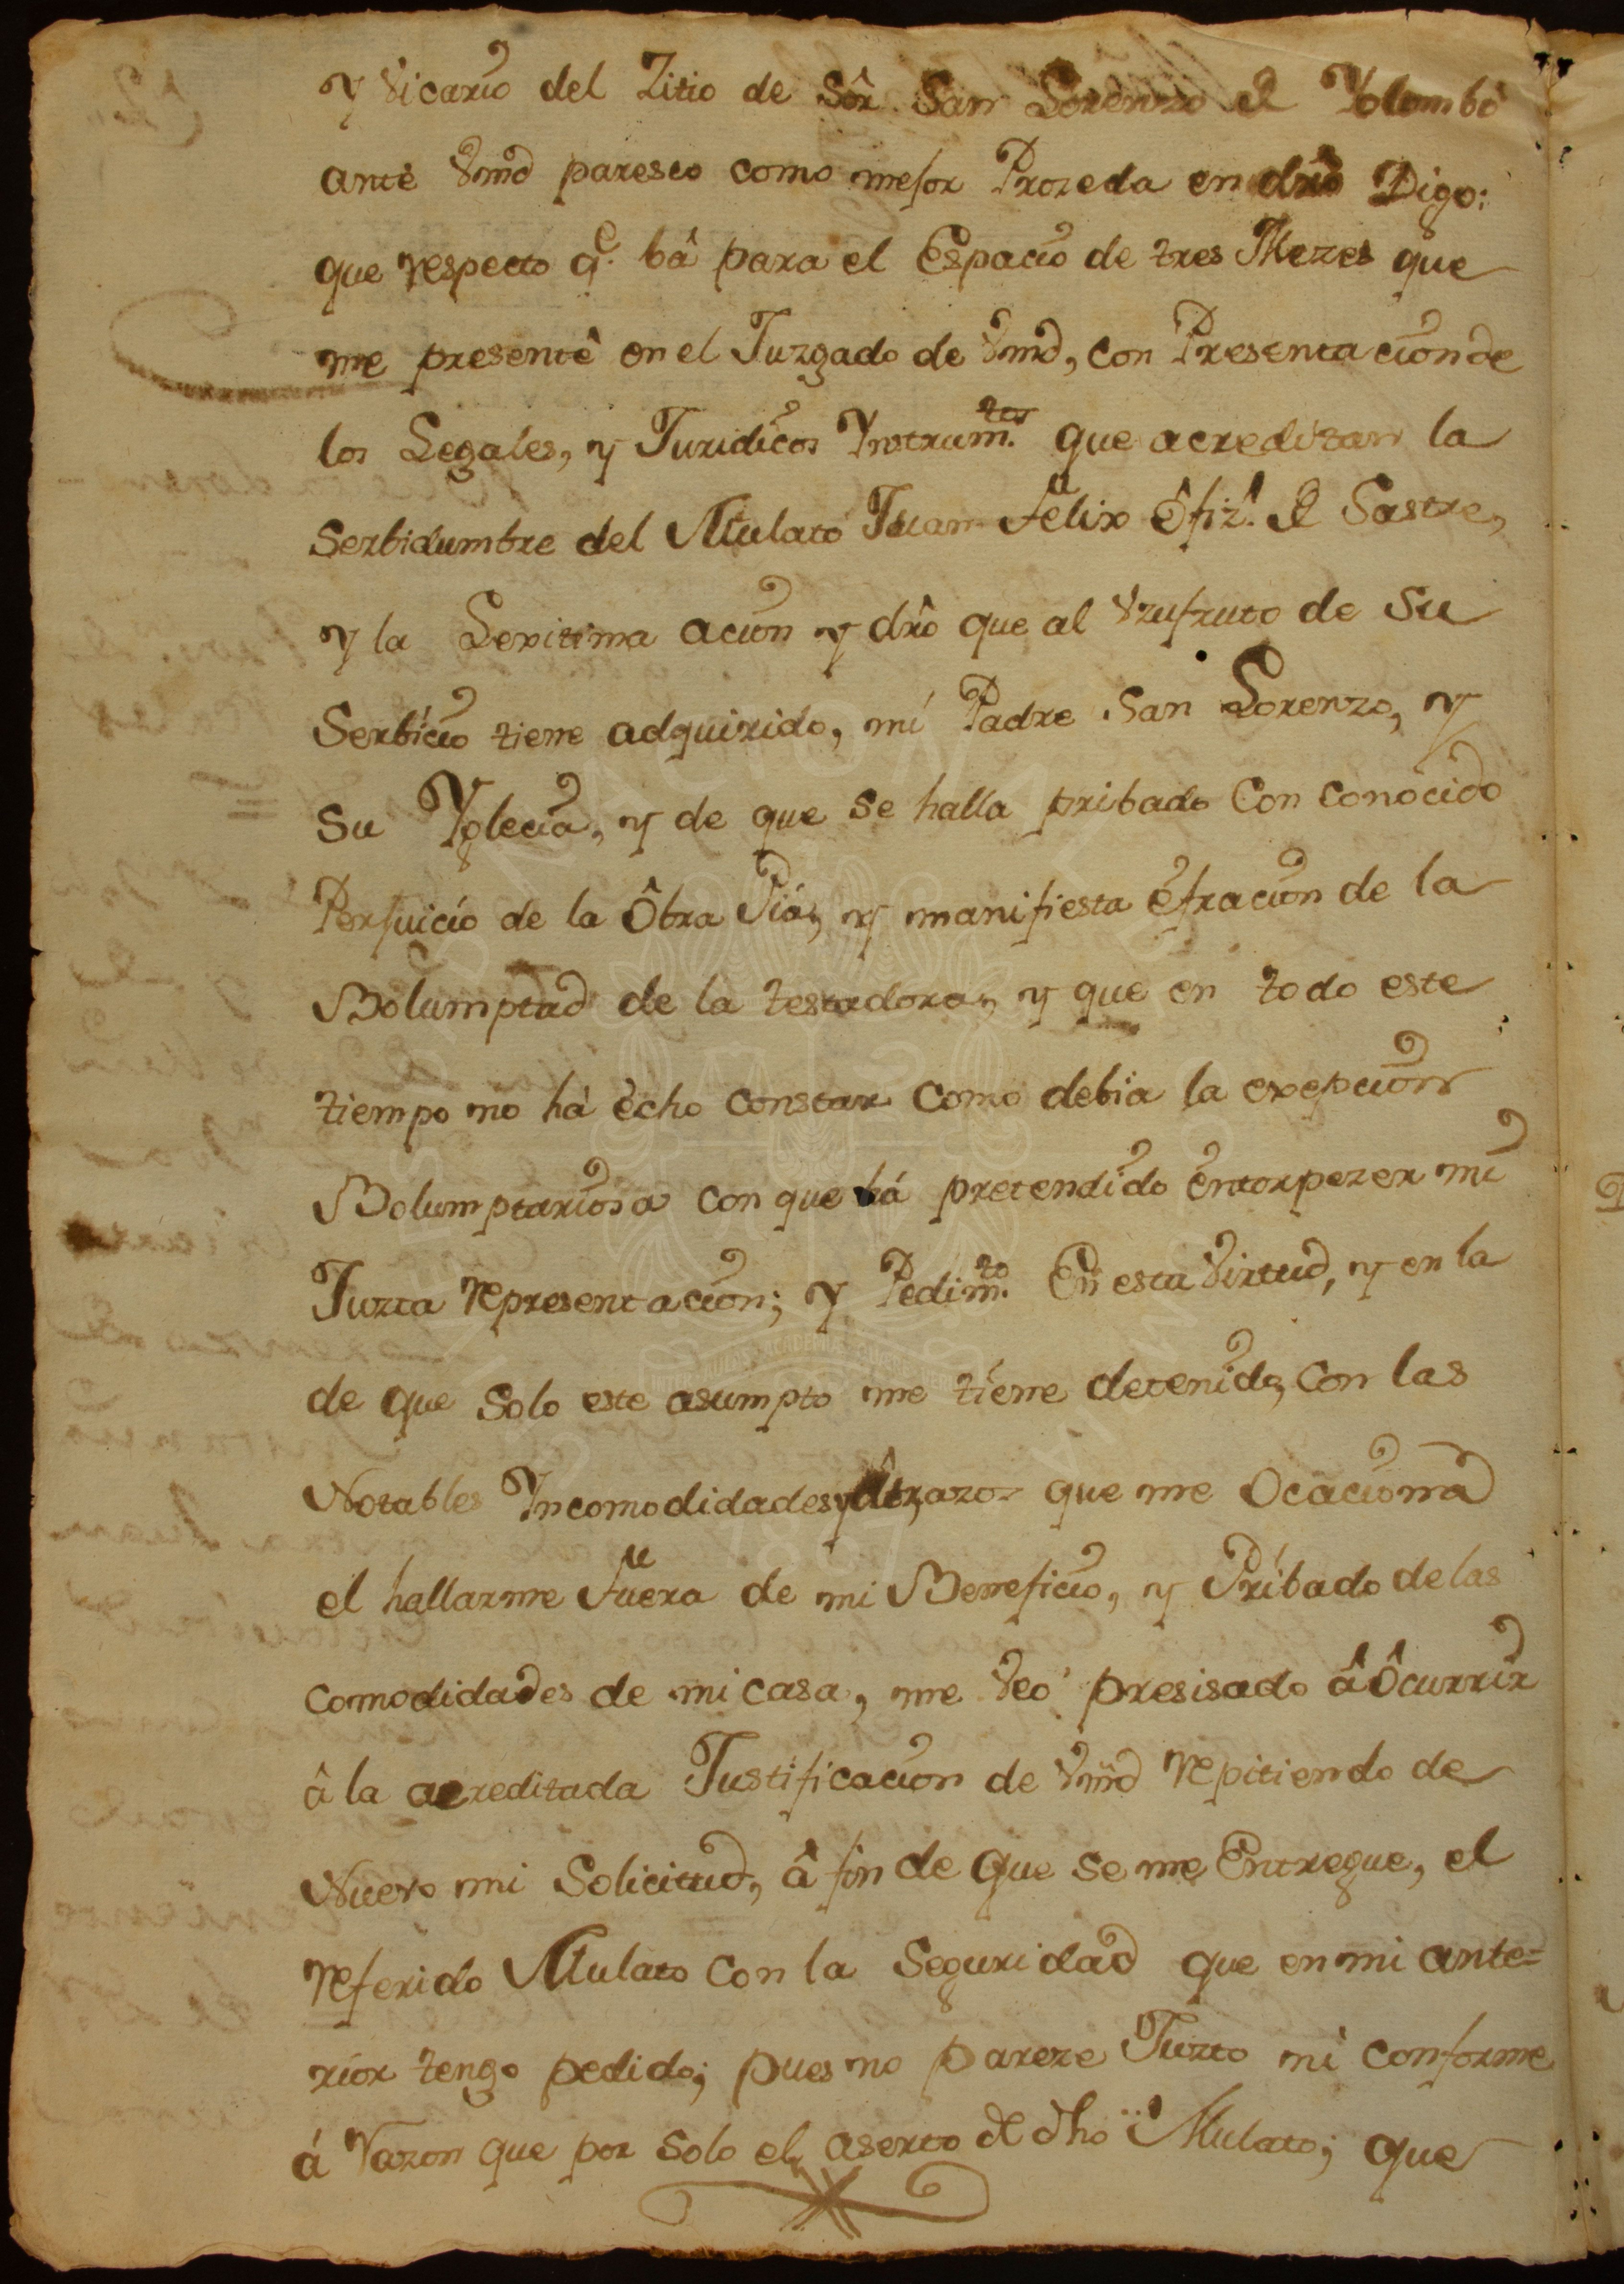 y Vicario del Zitio de Sôr San Lorenzo de Yolombô
ante Vmd paresco como mejor Prozeda en drô Digo:
que respecto q.e bâ para el Espacio de tres Mezes que
me presentê en el Juzgado de Vmd, con Presentacion de
los Legales, y Juridicos Ynstrum.tos que acreditan la
Serbidumbre del Mulato Juan Felix Ôfiz.l de Sastre,
y la Lexitima acion y drô que al Vzufruto de su
Serbicio tiene adquirido, mi Padre San Lorenzo, y
su Yglecia, y de que se halla pribado con conocido
Perjuicio de la Ôbra Pia, y manifiesta efracion de la
Bolumptad de la testadora, y que en todo este
tiempo no há echo constar como debia la exepcion
Bolumptariosa con que há pretendido entorpezer mi
Juzta representacion; y Pedim.to En esta Virtud, y en la
de que solo este asumpto me tiene detenido, con las
Notables Yncomodidades, y Atrazos que me Ocaciona
el hallarme fuera de mi Beneficio, y Pribado de las
comodidades de mi casa, me veo presisado â Ôcurrir
â la acreditada Justificacion de Vmd repitiendo de
Nuevo mi Solicitud, â fin de que se me Entregue, el
referido Mulato con la Seguridad que en mi ante=
rior tengo pedido; pues no pareze Juzto ni conforme
á razon que por solo el aserto de dho Mulato; que